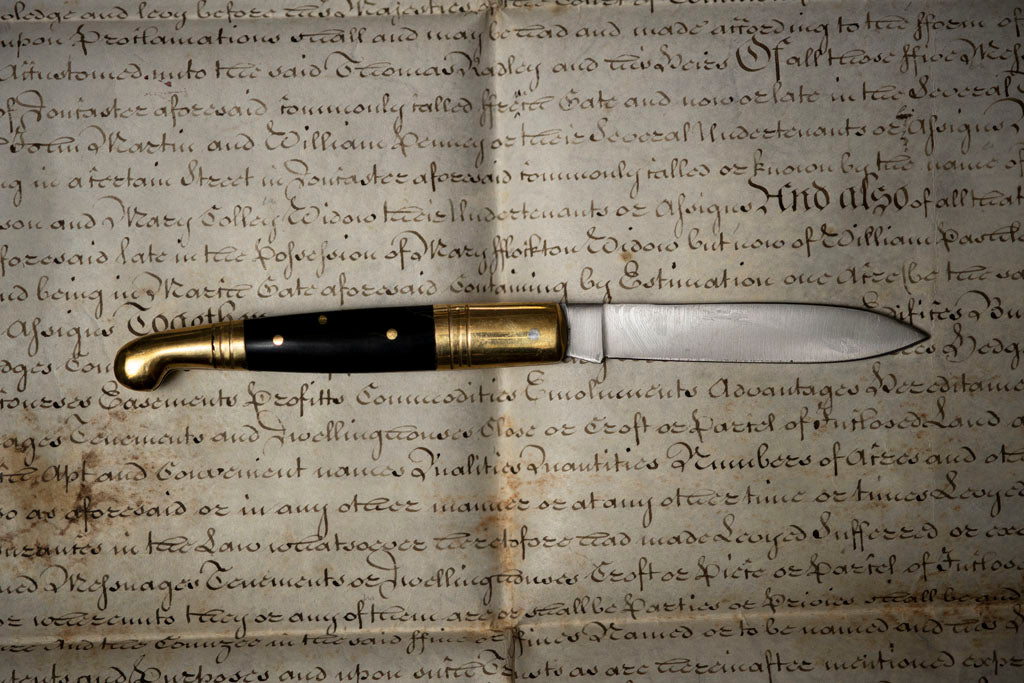 before this Majesties Court of
upon Proclamations shall and may be had and made according to the fform of
Accustomed unto the said Thomas Radley and his Heirs Of all those ffive
of Doncaster aforesaid commonly called ffrench Gate and now or late in the Several
John Martin and William Penney or their Several Undertenants or Assigns
in a certain Street in Doncaster aforesaid commonly called or known by the name of
son and Mary Colley Widow their Undertenants or Assigns And also of all that
foresaid late in the Possession of Mary Widow but now of William
nd being in March Gate aforesaid Containing by Estimation one Acre (be the sa
Assigns Together Edifices
dges
Easements Profitts Commodities Emoluments Advantages Hereditame
ages Tenements and Dwellinghouses Close or Croft or Parcel of Inclosed Land
Apt and Convenient names Qualities Quantities Numbers of Acres and
as aforesaid or in any other manner or at any other time or times Levyed
in the Law whatsoever heretofore had made Levyed Sufferred or
Messuages Tenements or Dwellinghouses Croft or Piece or Parcel of
or whereunto they or any of them are or shall be Parties or Privies shall be and
And the Conuzee in the said ffine or ffines Named or to be named and
Purposes and upon such Trusts as are hereinafter mentioned